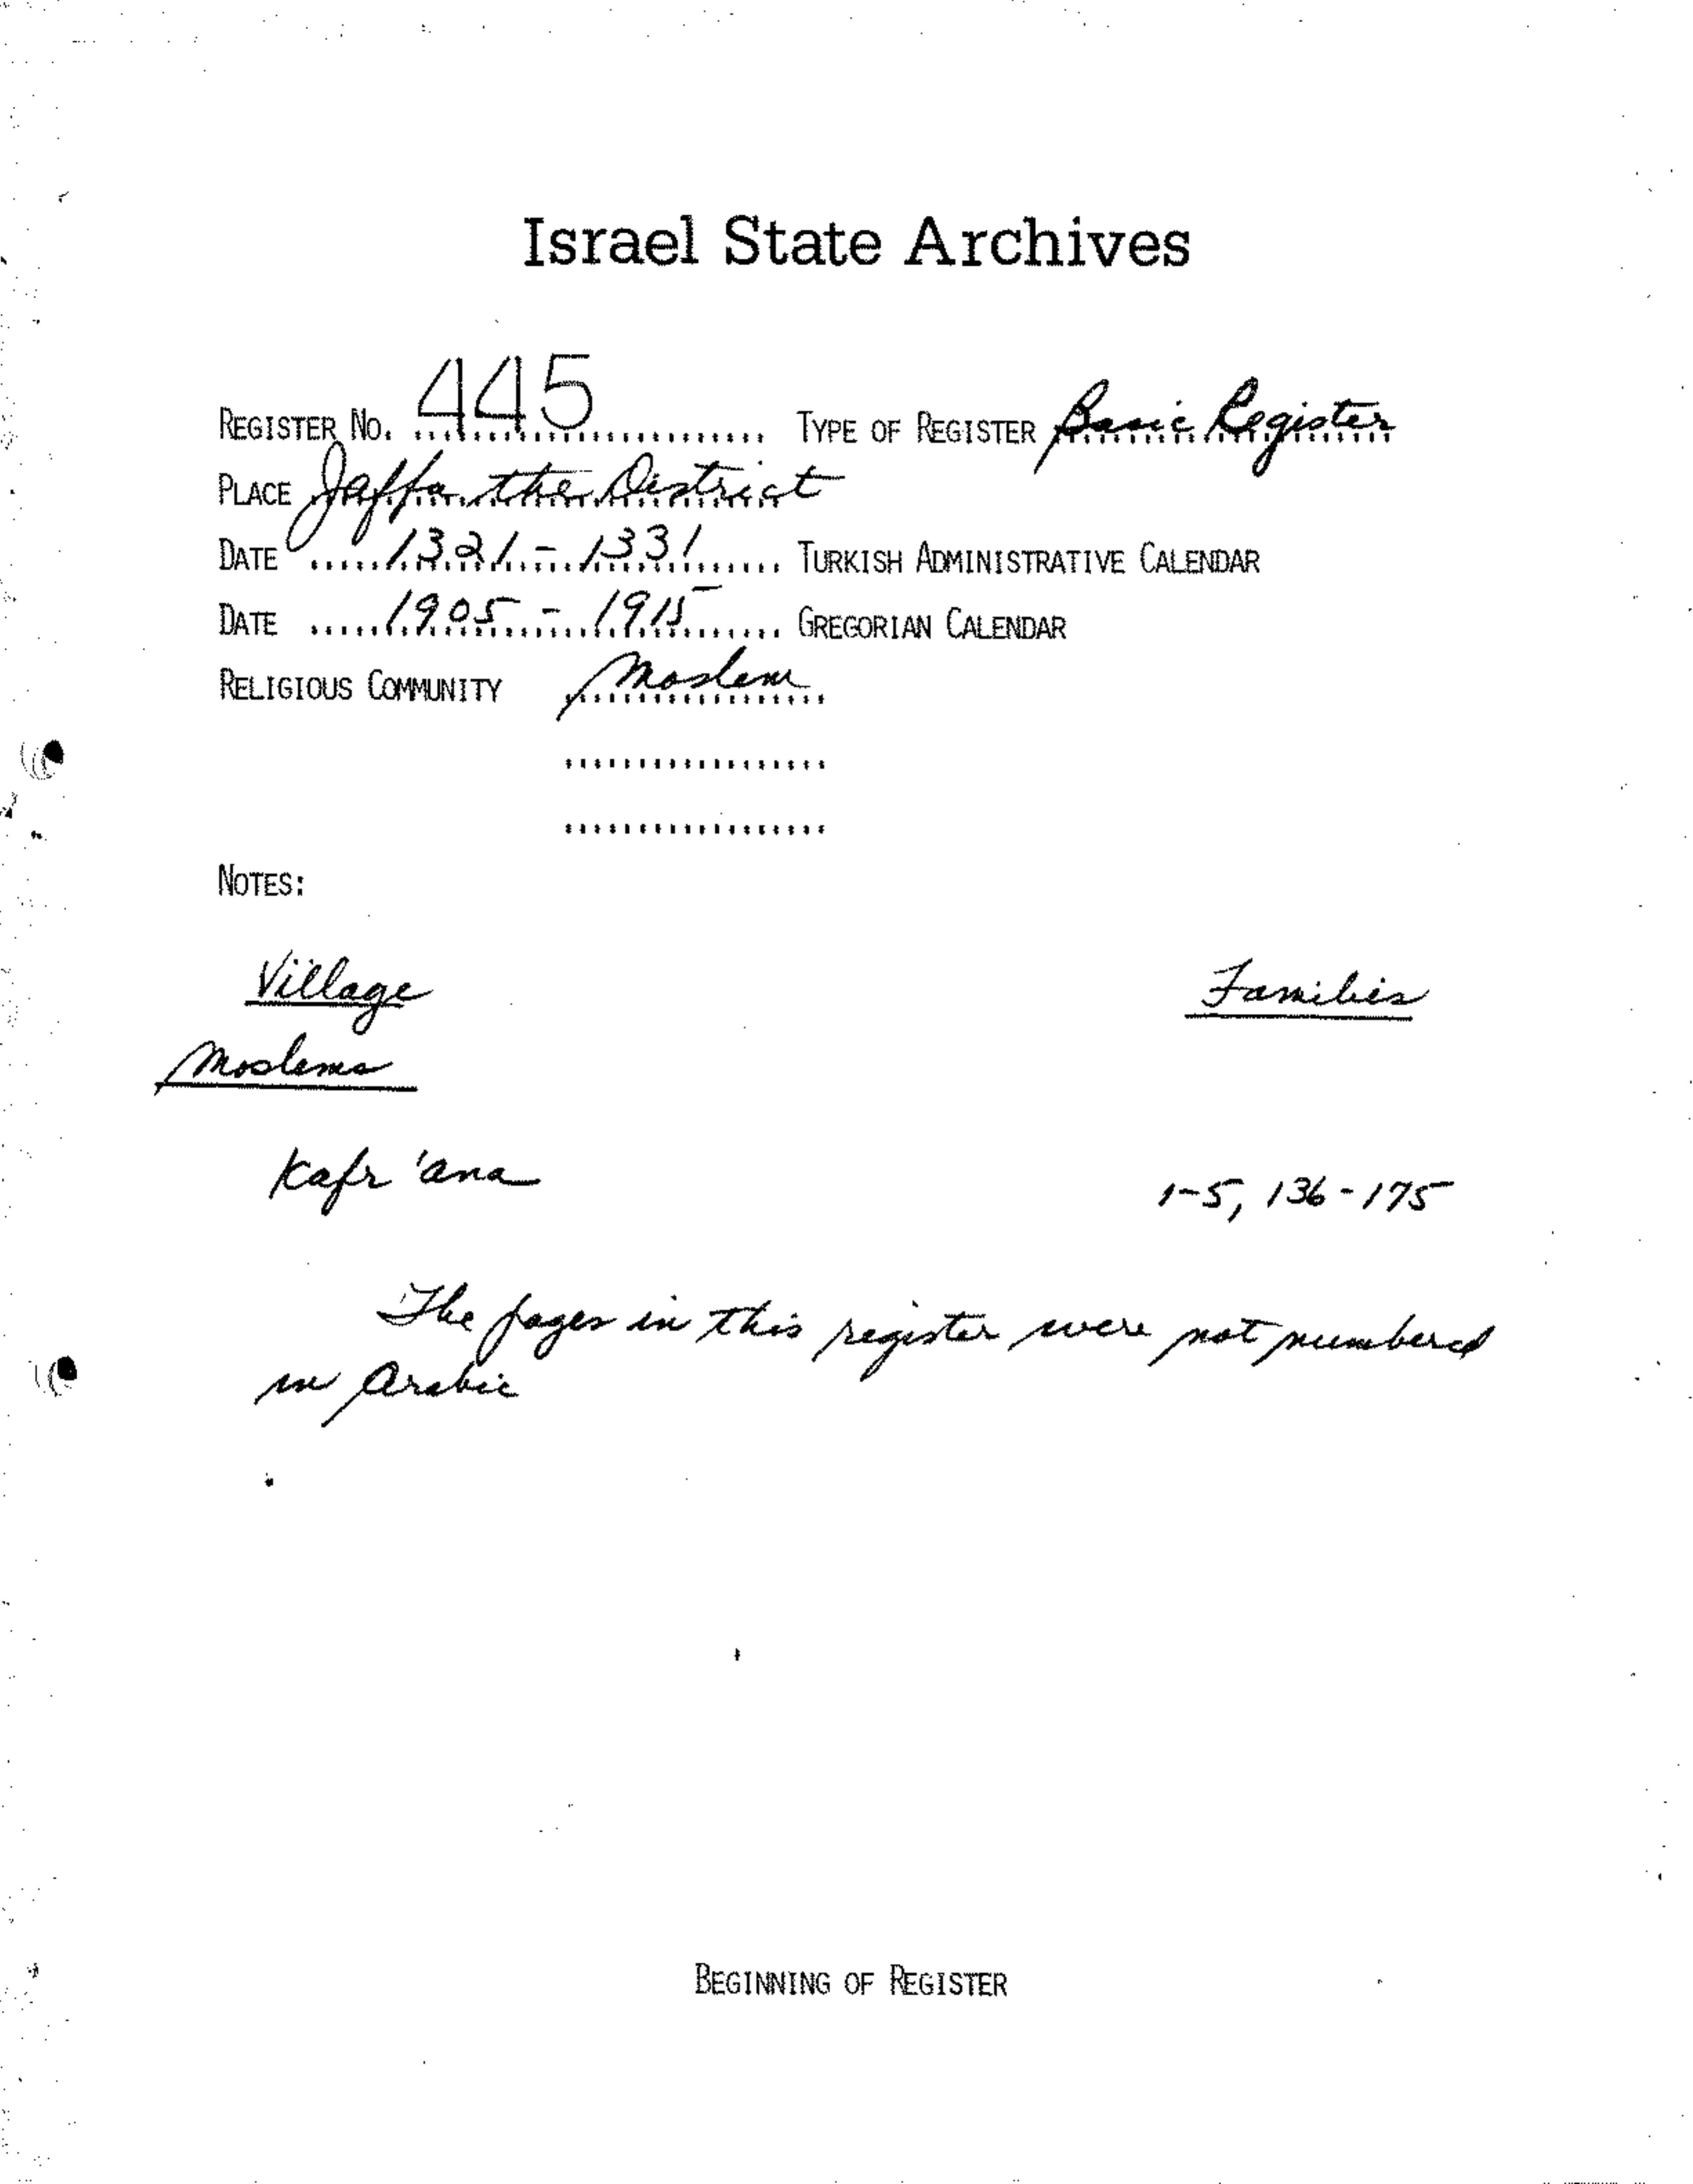 Israel State Archives
REGISTER NO. 445 TYPE OF REGISTER Basic Register
PLACE Jaffa the District
DATE 1321 - 1331 TURKISH ADMINISTRATIVE CALENDAR
DATE 1905 - 1915 GREGORIAN CALENDAR
RELIGIOUS COMMUNITY Moslem
NOTES:
Village Families
Moslems
Kafr 'ana 1-5, 136-175
The pages in this register were not numbered
in Arabic
BEGINNING OF REGISTER